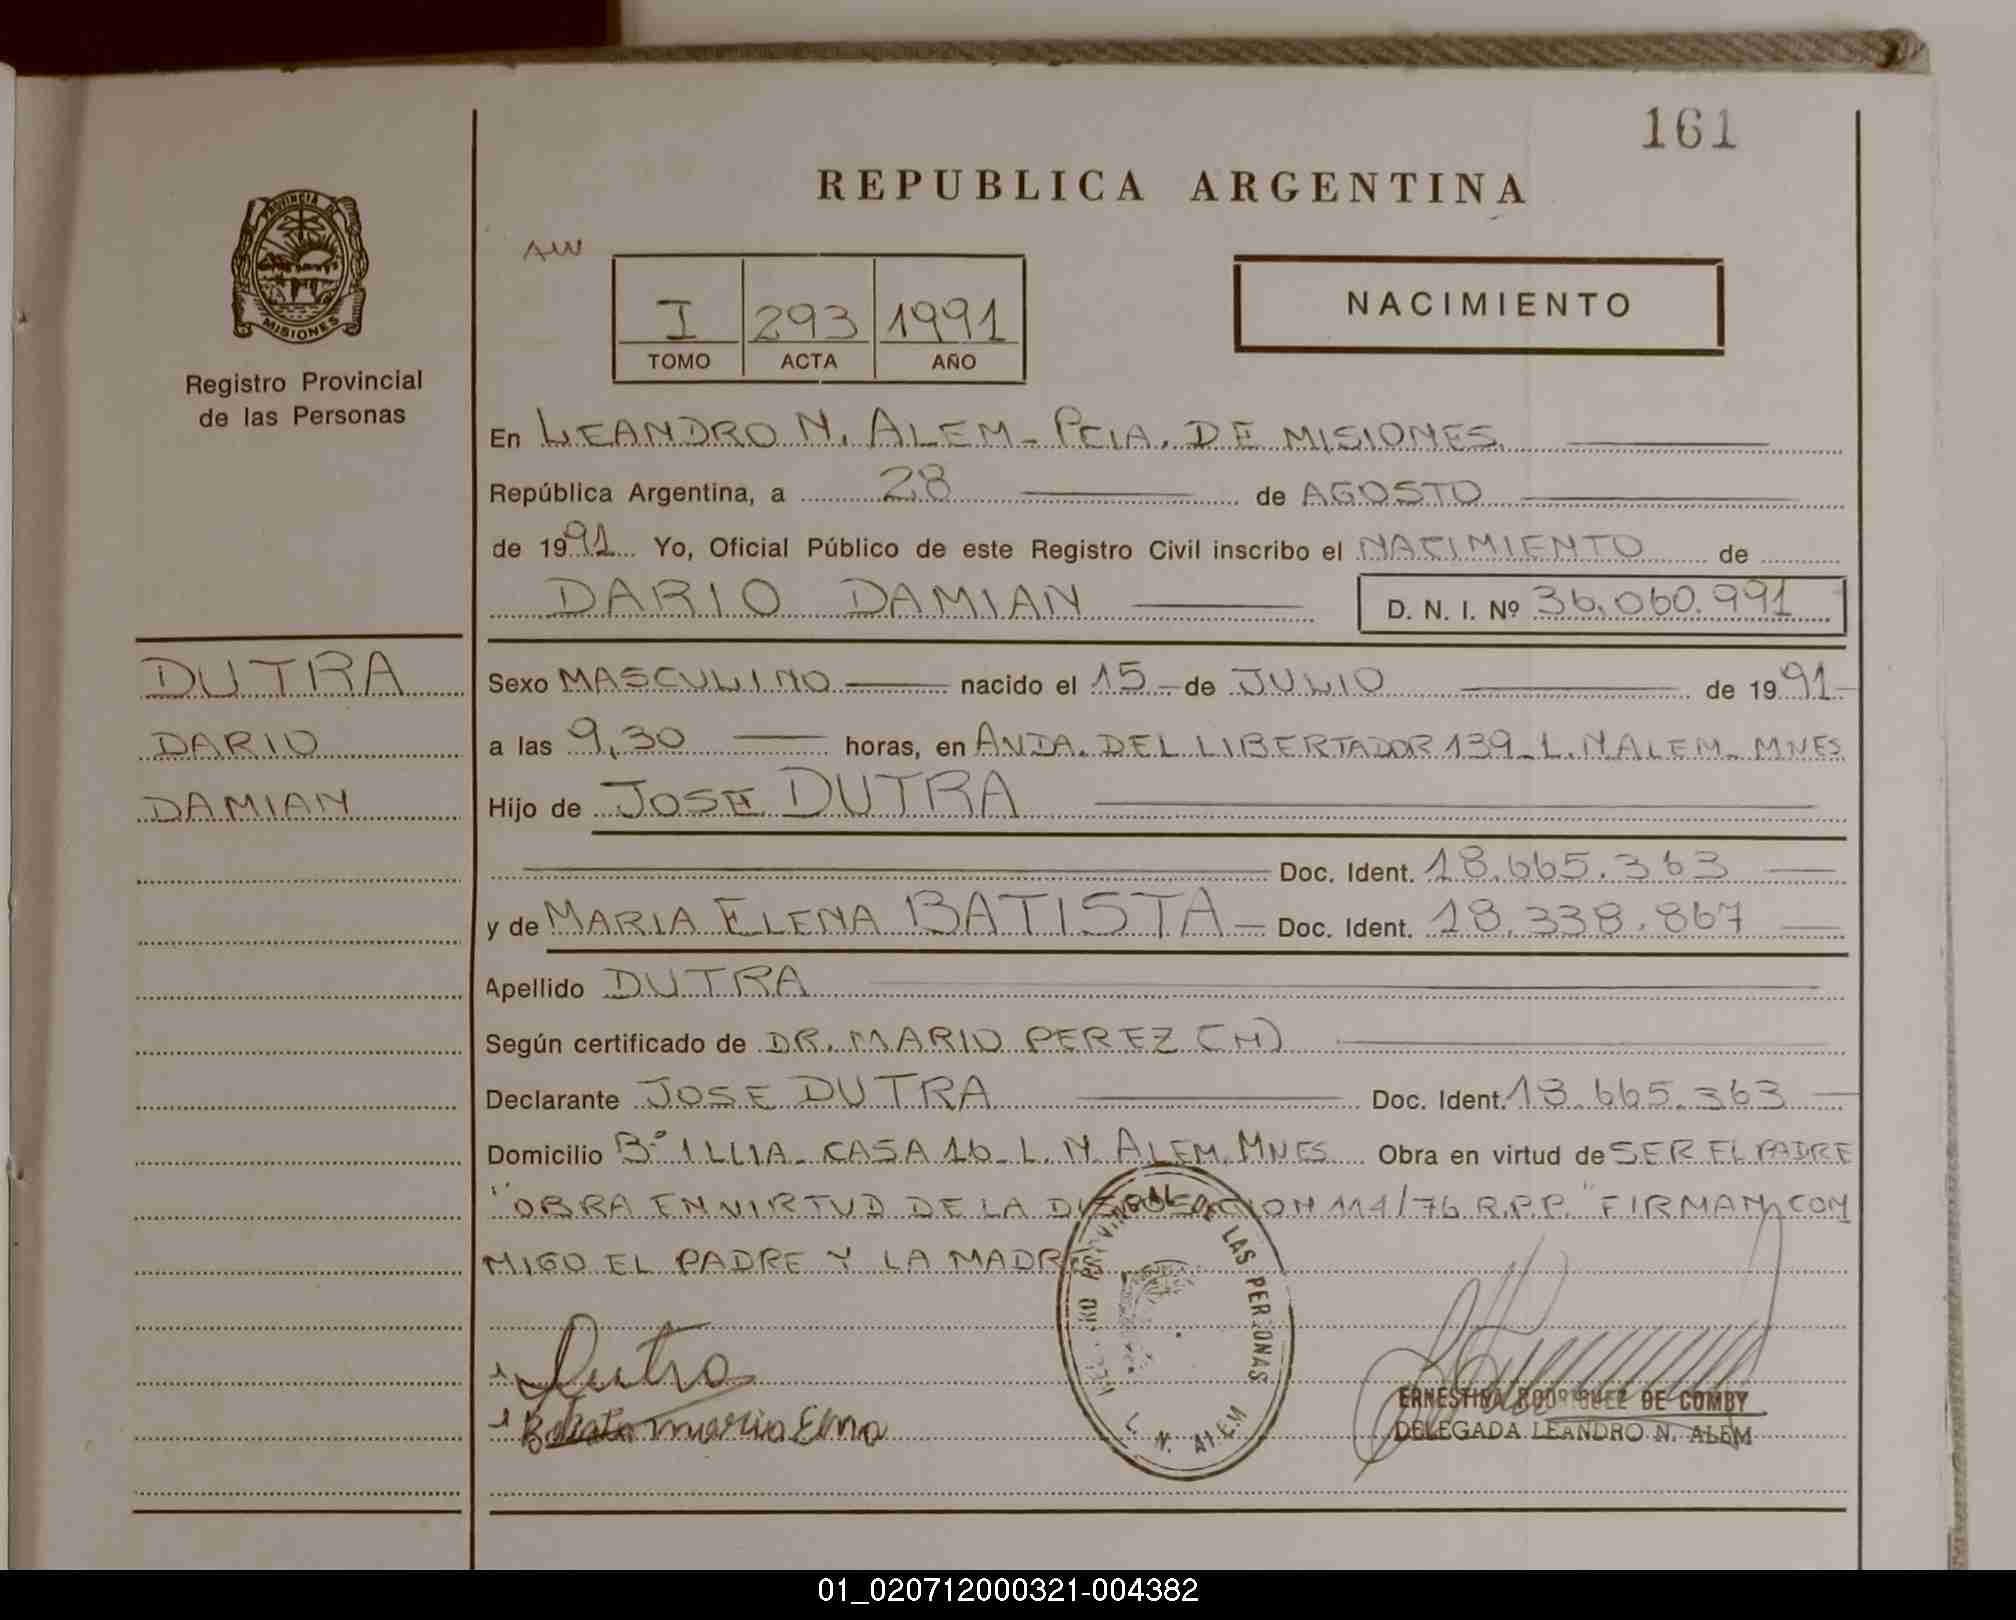 161
REPUBLICA ARGENTINA
AW
PROVINCIA DE
MISIONES
Registro Provincial
de las Personas
I 293 1991
TOMO ACTA AÑO
NACIMIENTO
En LEANDRO N. ALEM - PCIA. DE MISIONES
República Argentina, a 28 de AGOSTO
de 1991 Yo, Oficial Público de este Registro Civil inscribo el NACIMIENTO de
DARIO DAMIAN D. N. I. Nº 36.060.991
DUTRA
DARIO
DAMIAN
Sexo MASCULINO nacido el 15 de JULIO de 1991
a las 9,30 horas, en AVDA. DEL LIBERTADOR 139 - L. N ALEM - MNES
Hijo de JOSE DUTRA
Doc. Ident. 18.665.363
y de MARIA ELENA BATISTA Doc. Ident. 18.338.867
Apellido DUTRA
Según certificado de DR. MARIO PEREZ (H)
Declarante JOSE DUTRA Doc. Ident. 18.665.363
Domicilio Bº ILLIA - CASA 16 - L. N. ALEM. MNES Obra en virtud de SER EL PADRE
"OBRA EN VIRTUD DE LA DISPOSICION 114/76 R.P.P." FIRMAN CON
MIGO EL PADRE Y LA MADRE
PROVINCIAL DE LAS PERSONAS
L. N. ALEM
Dutra
maria Elena
ERNESTINA RODRIGUEZ DE COMBY
DELEGADA LEANDRO N. ALEM
01_020712000321-004382